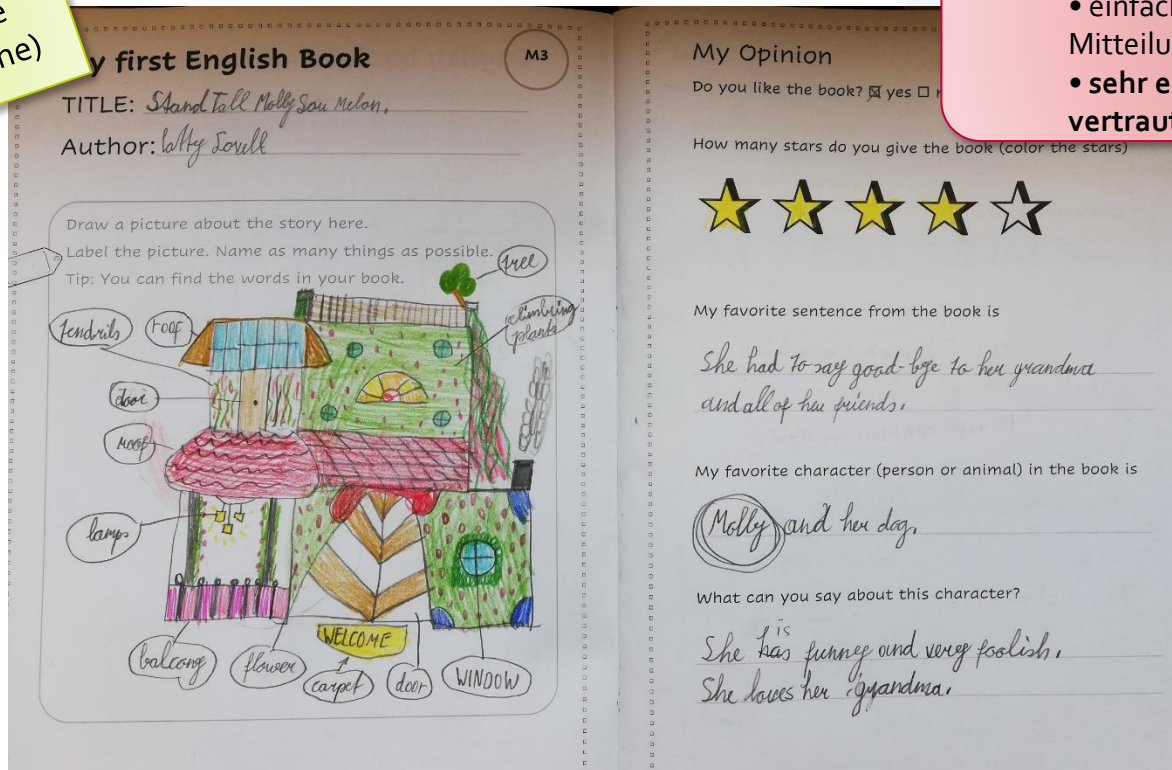 e
ne)
y first English Book
M3
TITLE: Stand Tall Molly Lou Melon.
Author: Patty Lovell
Draw a picture about the story here.
Label the picture. Name as many things as possible.
Tip: You can find the words in your book.
tree
climbing
plants
tendrils
roof
door
roof
lamps
WELCOME
balcony
flower
carpet
door
WINDOW
• einfach
Mitteilu
• sehr e
vertraut
My Opinion
Do you like the book? yes
How many stars do you give the book (color the stars)
My favorite sentence from the book is
She had to say good-bye to her grandma
and all of her friends.
My favorite character (person or animal) in the book is
Molly and her dog.
What can you say about this character?
is
She has funney and very foolish.
She loves her grandma.